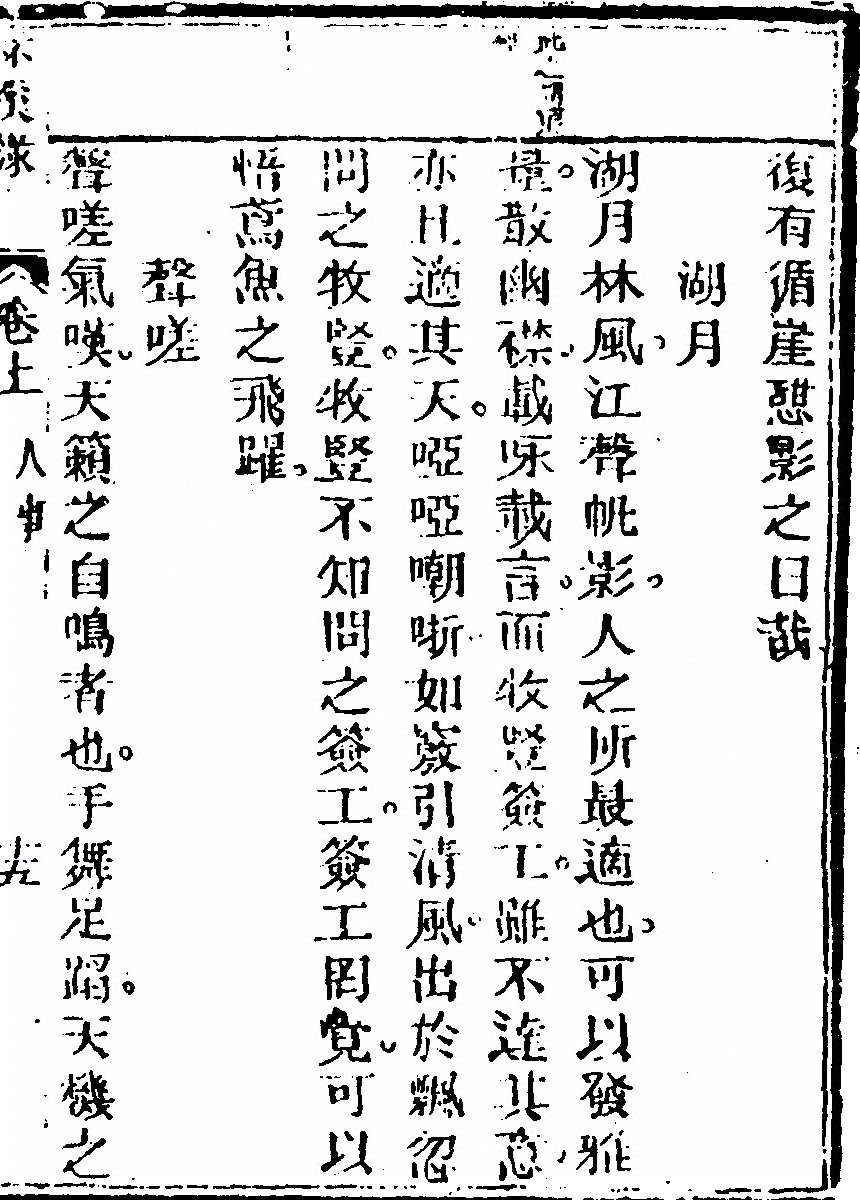 復有循崖憇影之日哉
湖月
湖月林風江聲帆影人之所最適也可以發雅
量散幽襟載咏載言而牧豎簽工雖不達其意
亦且適其天啞啞嘲哳如簽引清風出於飄忽
問之牧豎牧豎不知問之簽工簽工罔覺可以
悟鳶魚之飛躍
聲嗟
聲嗟氣嘆天籟之自鳴者也手舞足蹈天機之
卷上 人事